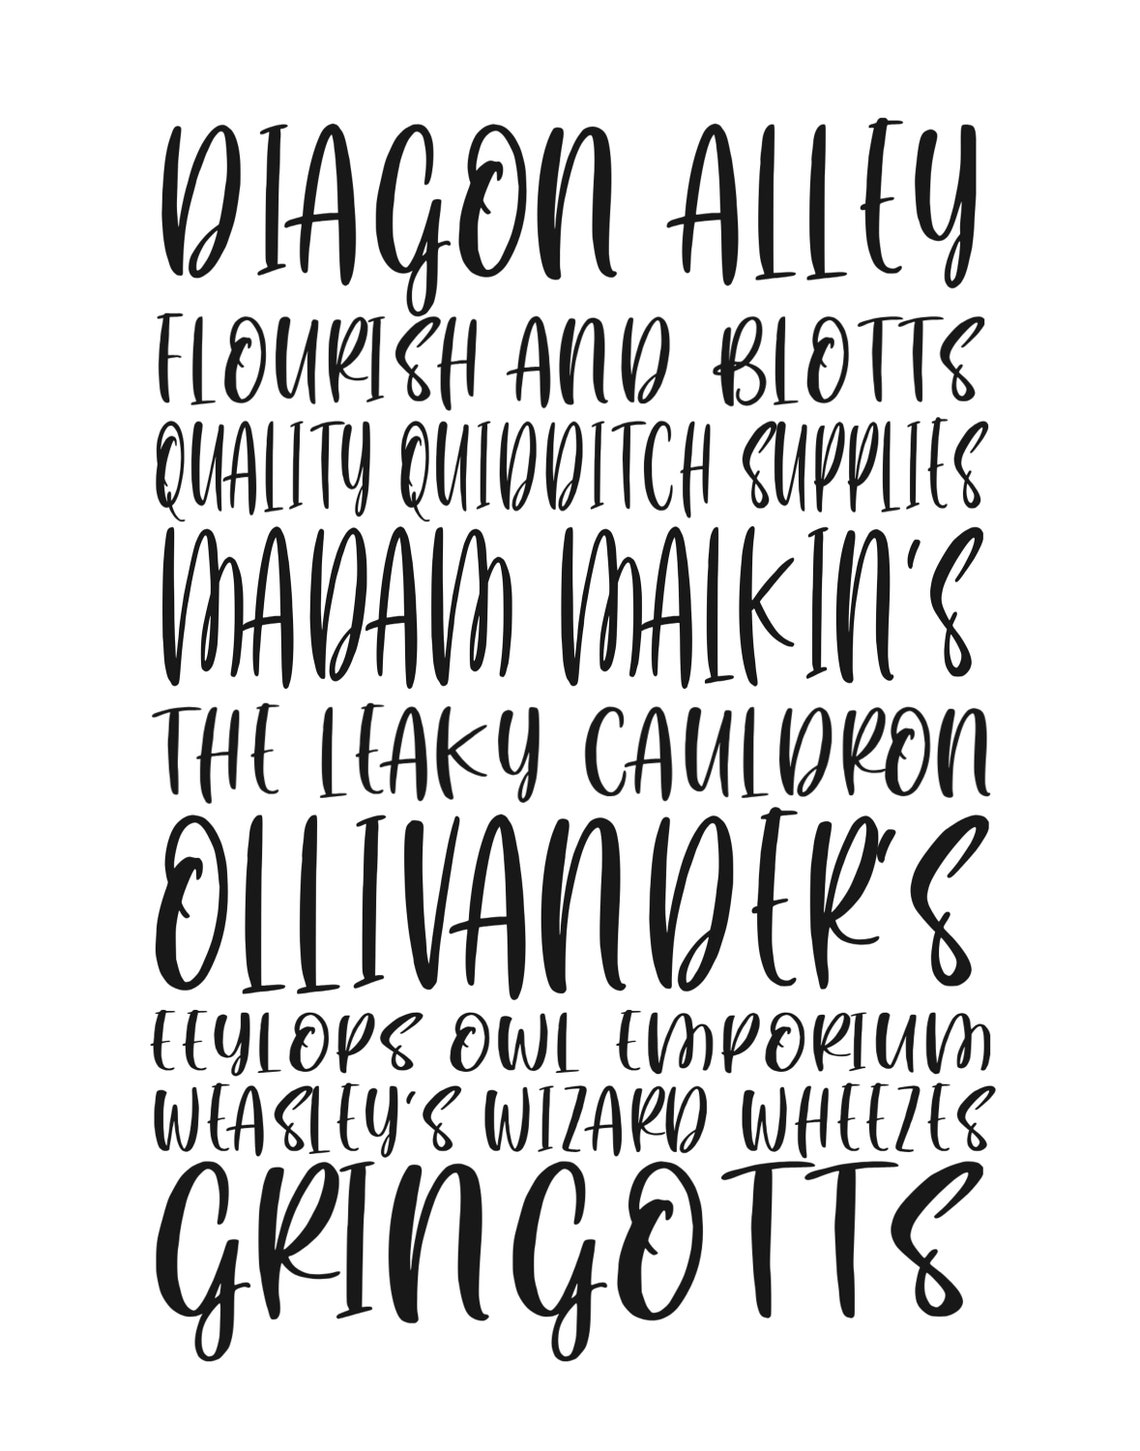 DIAGON ALLEY
FLOURISH AND BLOTTS
QUALITY QUIDDITCH SUPPLIES
MADAM MALKIN'S
THE LEAKY CAULDRON
OLLIVANDER'S
EEYLOPS OWL EMPORIUM
WEASLEY'S WIZARD WHEEZES
GRINGOTTS